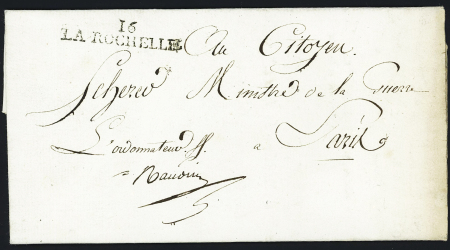 16
LA ROCHELLE Au Citoyen
Scherer Ministre de la Guerre
L'ordonnateur ff. a Paris
Naudin